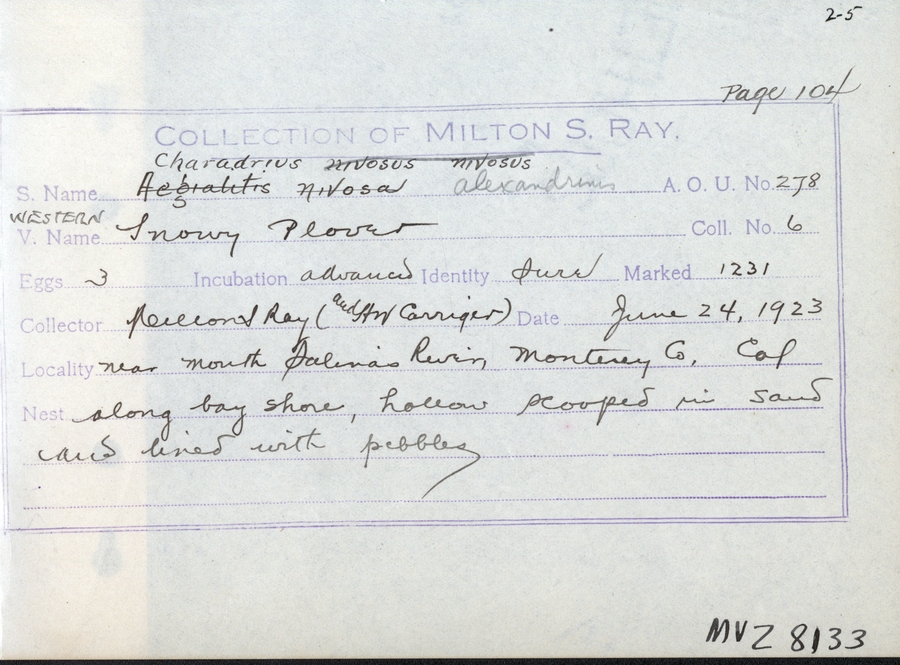 2-5
Page 104
COLLECTION OF MILTON S. RAY.
Charadrius nivosus nivosus
S. Name Aegialitis nivosa alexandrinus A. O. U. No. 278
WESTERN
V. Name Snowy Plover Coll. No. 6
Eggs 3 Incubation advanced Identity sure Marked 1231
Collector Milton S Ray (and HW Carriger) Date June 24, 1923
Locality near mouth Salinas River, Monterey Co, Cal
Nest along bay shore, hollow scooped in sand
and lined with pebbles
MVZ 8133